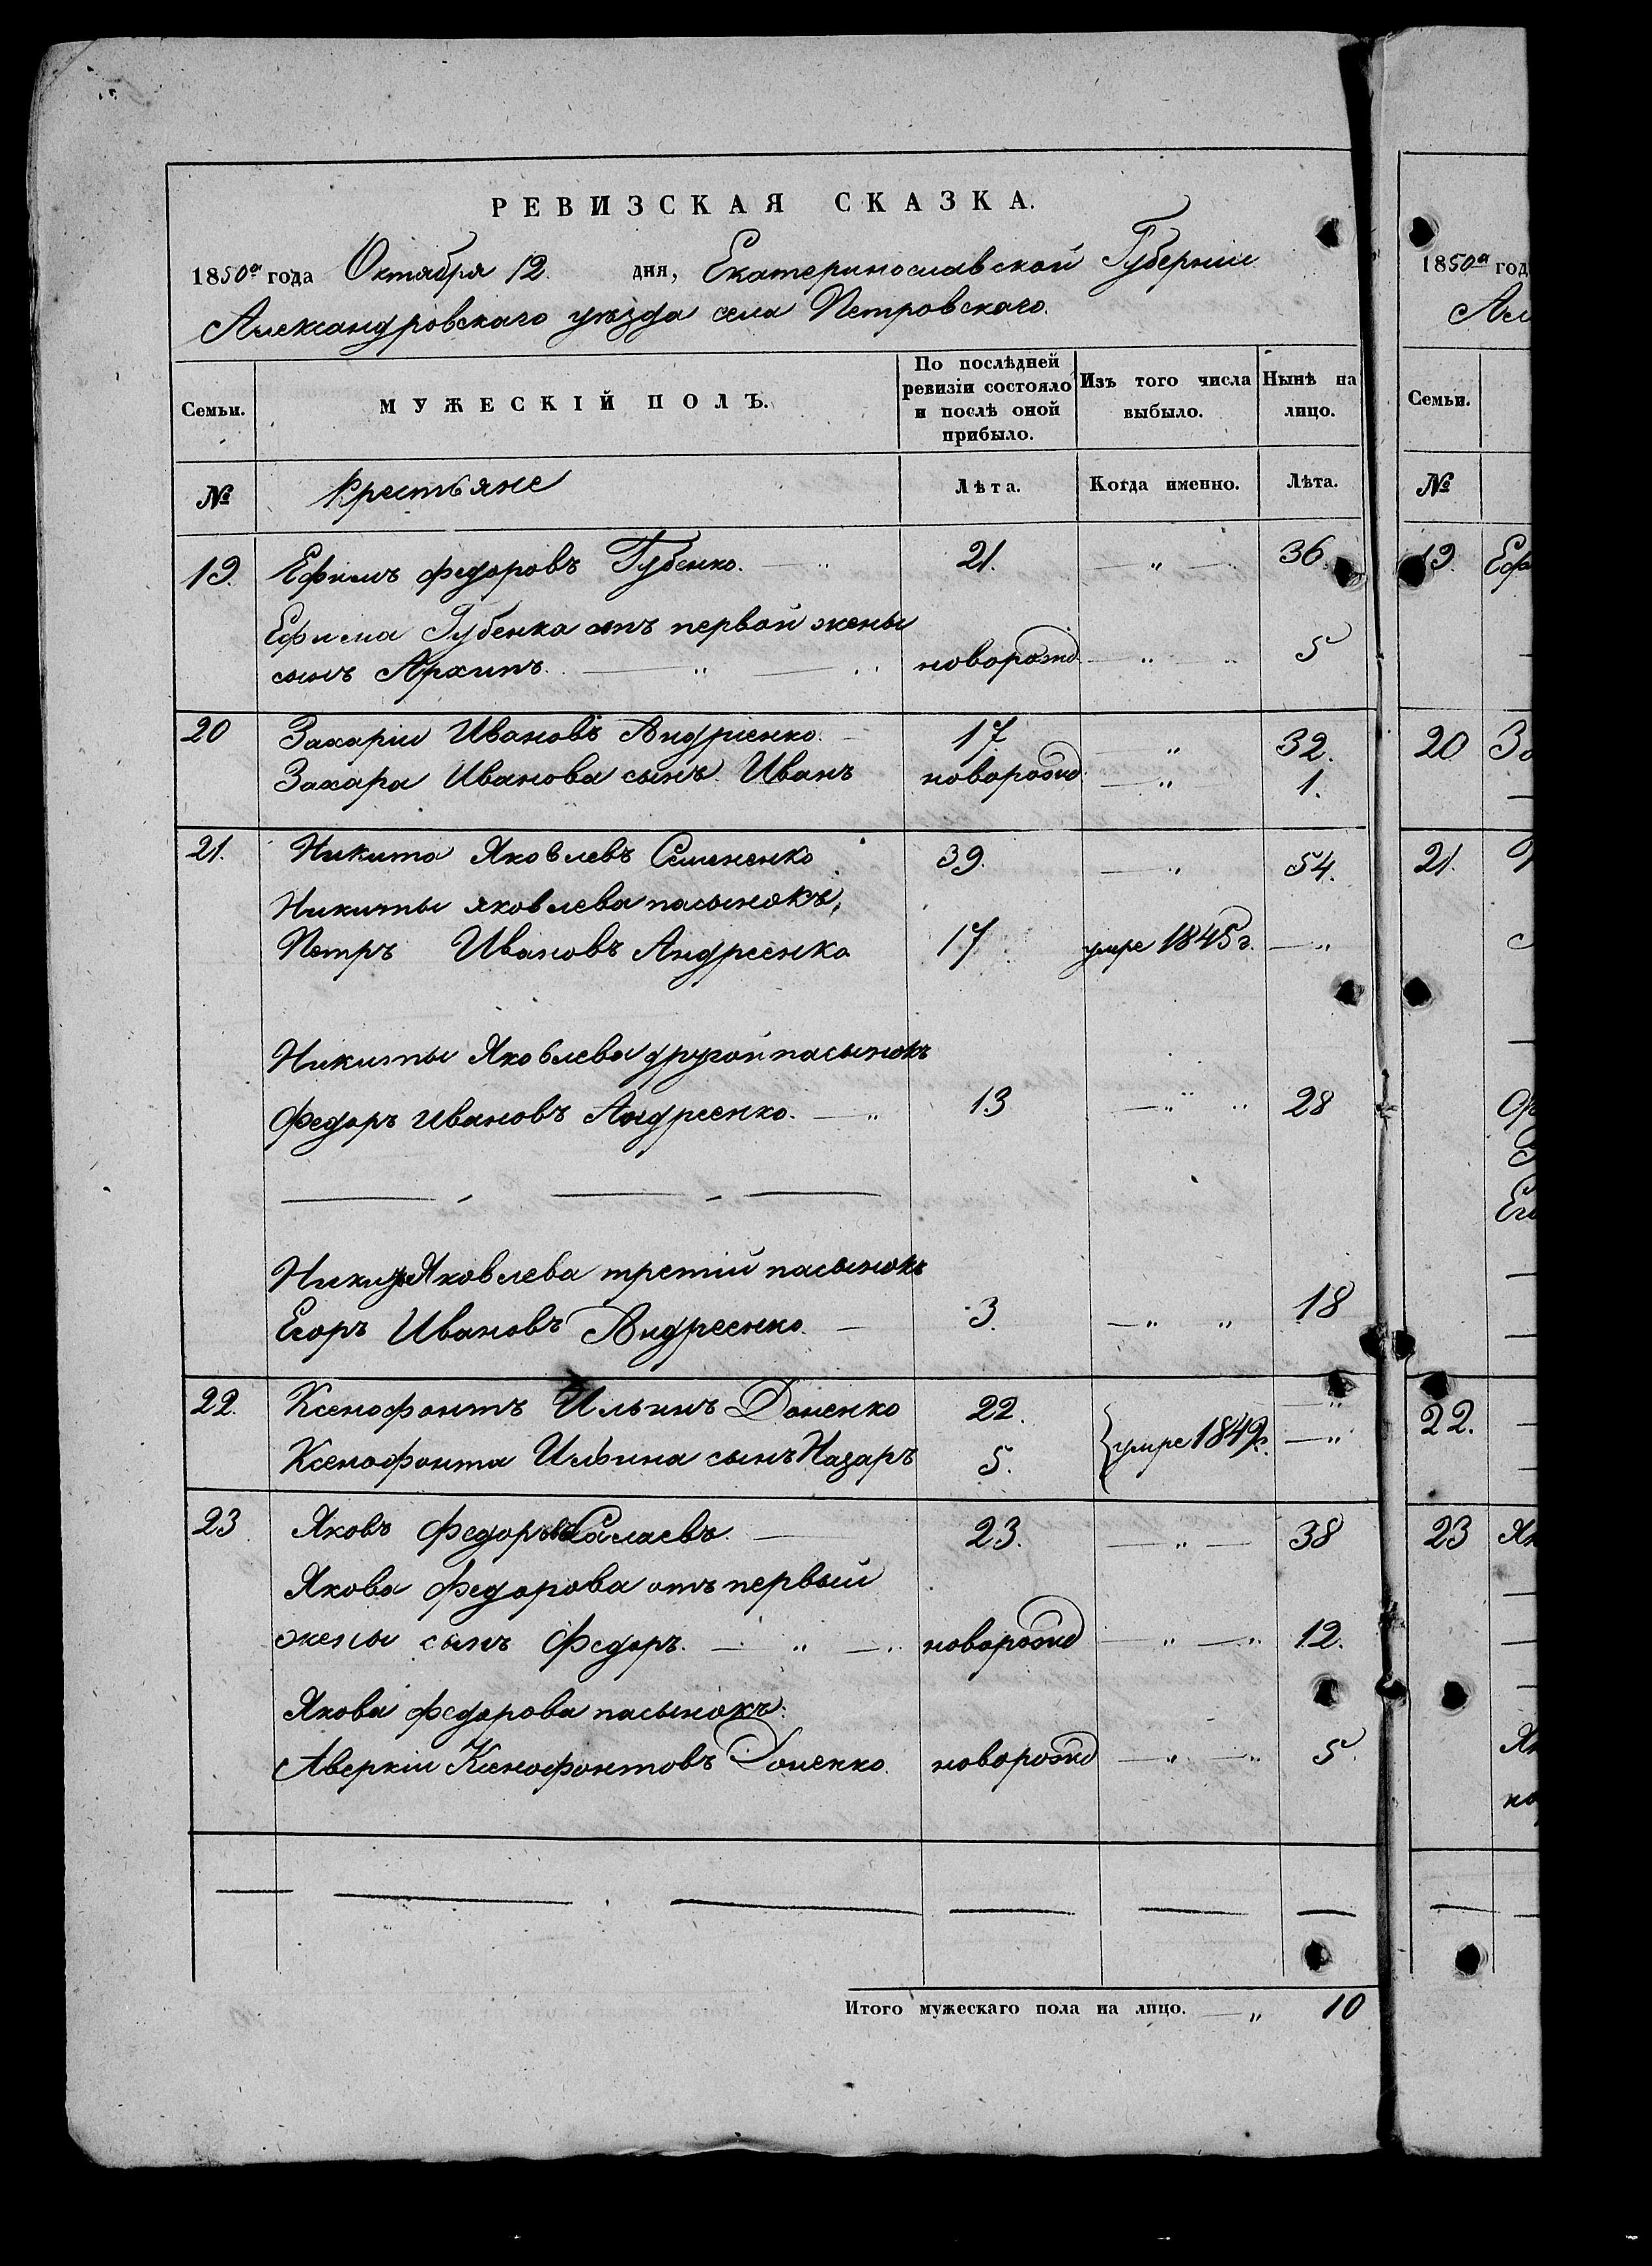 РЕВИЗСКАЯ СКАЗКА.
1850а года Октября 12 дня, Екатеринославской Губернии
Александровскаго уѣзда села Петровскаго.
Семьи. МУЖЕСКІЙ ПОЛЪ. По послѣдней ревизіи состояло и послѣ оной прибыло. Изъ того числа выбыло. Нынѣ на лицо.
№ Крестьяне Лѣта. Когда именно. Лѣта.
19. Ефимъ Федоровъ Губенко. 21. — „ — 36
Ефима Губенка отъ первой жены
сынъ Архипъ. — „ — новорожд — „ 5
20 Захарiи Ивановъ Андріенко. 17. — „ 32.
Захара Иванова сынъ Иванъ новорожд — „ 1.
21. Никита Яковлевъ Семененко 39. — „ 54.
Никиты яковлева пасынокъ,
Петръ Ивановъ Андреенко 17 умре 1845 г. — „
Никиты Яковлева другой пасынокъ
Федоръ Ивановъ Андреенко. — „ 13 — „ „ 28
Никиты Яковлева третій пасынокъ
Егоръ Ивановъ Андреенко. — 3. — „ „ 18
22. Ксенофонтъ Ильинъ Доненко 22. — „
Ксенофонта Ильина сынъ Назаръ 5. умре 1849 г. — „
23 Яковъ Федоровъ — 23. — „ — 38
Якова Федорова отъ первый
жены сынъ Федоръ. — „ — новорожд — „ — „ 12.
Якова Федорова пасынокъ.
Аверкiи Ксенофонтовъ Доненко. новорожд — „ — „ 5.
Итого мужескаго пола на лицо. — „ 10
1850а год
Ал
Семьи.
№
19. Еф
20 За
21.
Ег
22.
23 Як
Як